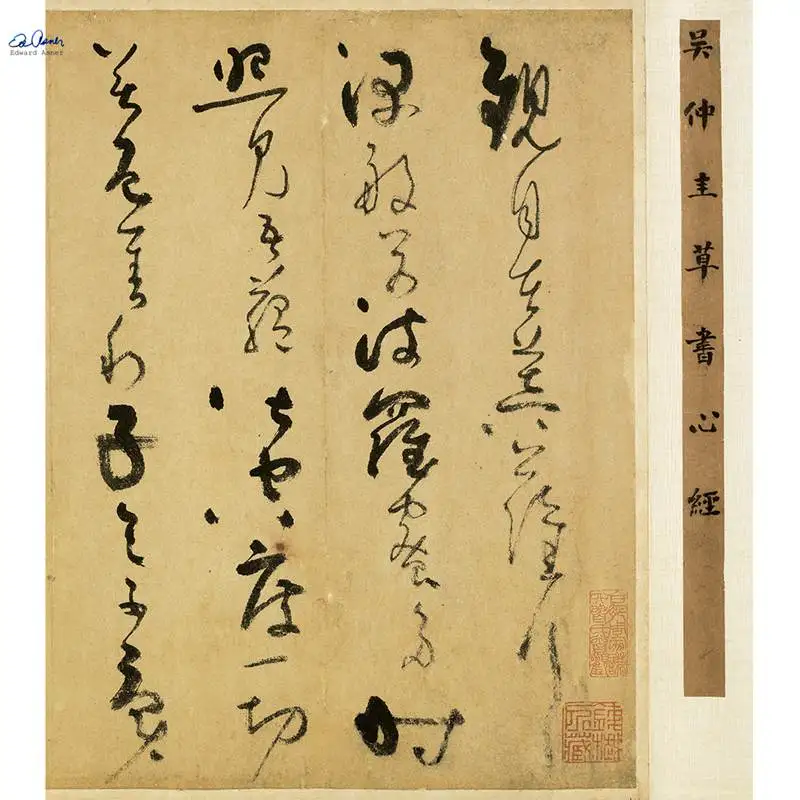 Ed Asner
Edward Asner
吴仲圭草書心經
觀自在菩薩行
深般若波羅蜜多時
照見五蘊皆空度一切
苦厄舍利子色不異